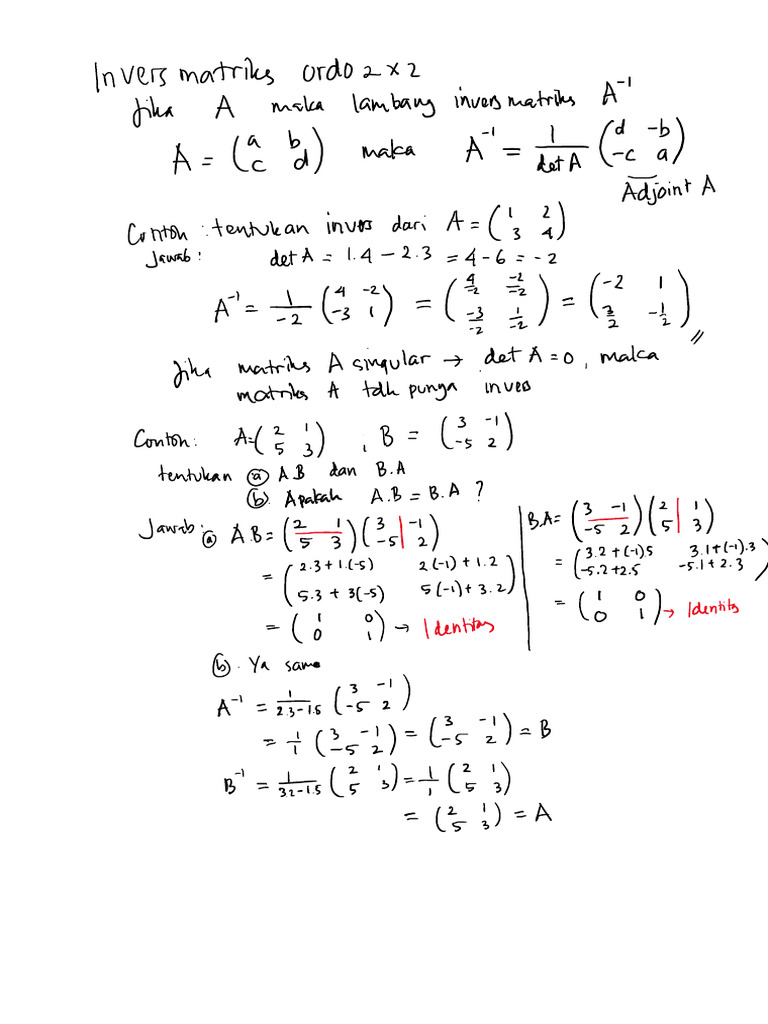 Invers matriks ordo 2 x 2
Jika A maka lambang invers matriks A⁻¹
A = (a b; c d) maka A⁻¹ = 1/det A (d -b; -c a)
Adjoint A
Conton : tentukan invers dari A = (1 2; 3 4)
Jawab : det A = 1.4 - 2.3 = 4 - 6 = -2
A⁻¹ = 1/-2 (4 -2; -3 1) = (4/-2 -2/-2; -3/-2 1/-2) = (-2 1; 3/2 -1/2) //
Jika matriks A singular → det A = 0, maka
matriks A tdk punya invers
Conton: A = (2 1; 5 3), B = (3 -1; -5 2)
tentukan ⓐ A.B dan B.A
ⓑ. Apakah A.B = B.A ?
Jawab: ⓐ A.B = (2 1; 5 3)(3 -1; -5 2)
= (2.3+1.(-5) 2(-1)+1.2; 5.3+3(-5) 5(-1)+3.2)
= (1 0; 0 1) → Identitas
B.A = (3 -1; -5 2)(2 1; 5 3)
= (3.2+(-1)5 3.1+(-1).3; -5.2+2.5 -5.1+2.3)
= (1 0; 0 1) → Identitas
ⓑ. Ya sama
A⁻¹ = 1/2.3-1.5 (3 -1; -5 2)
= 1/1 (3 -1; -5 2) = (3 -1; -5 2) = B
B⁻¹ = 1/32-1.5 (2 1; 5 3) = 1/1 (2 1; 5 3)
= (2 1; 5 3) = A